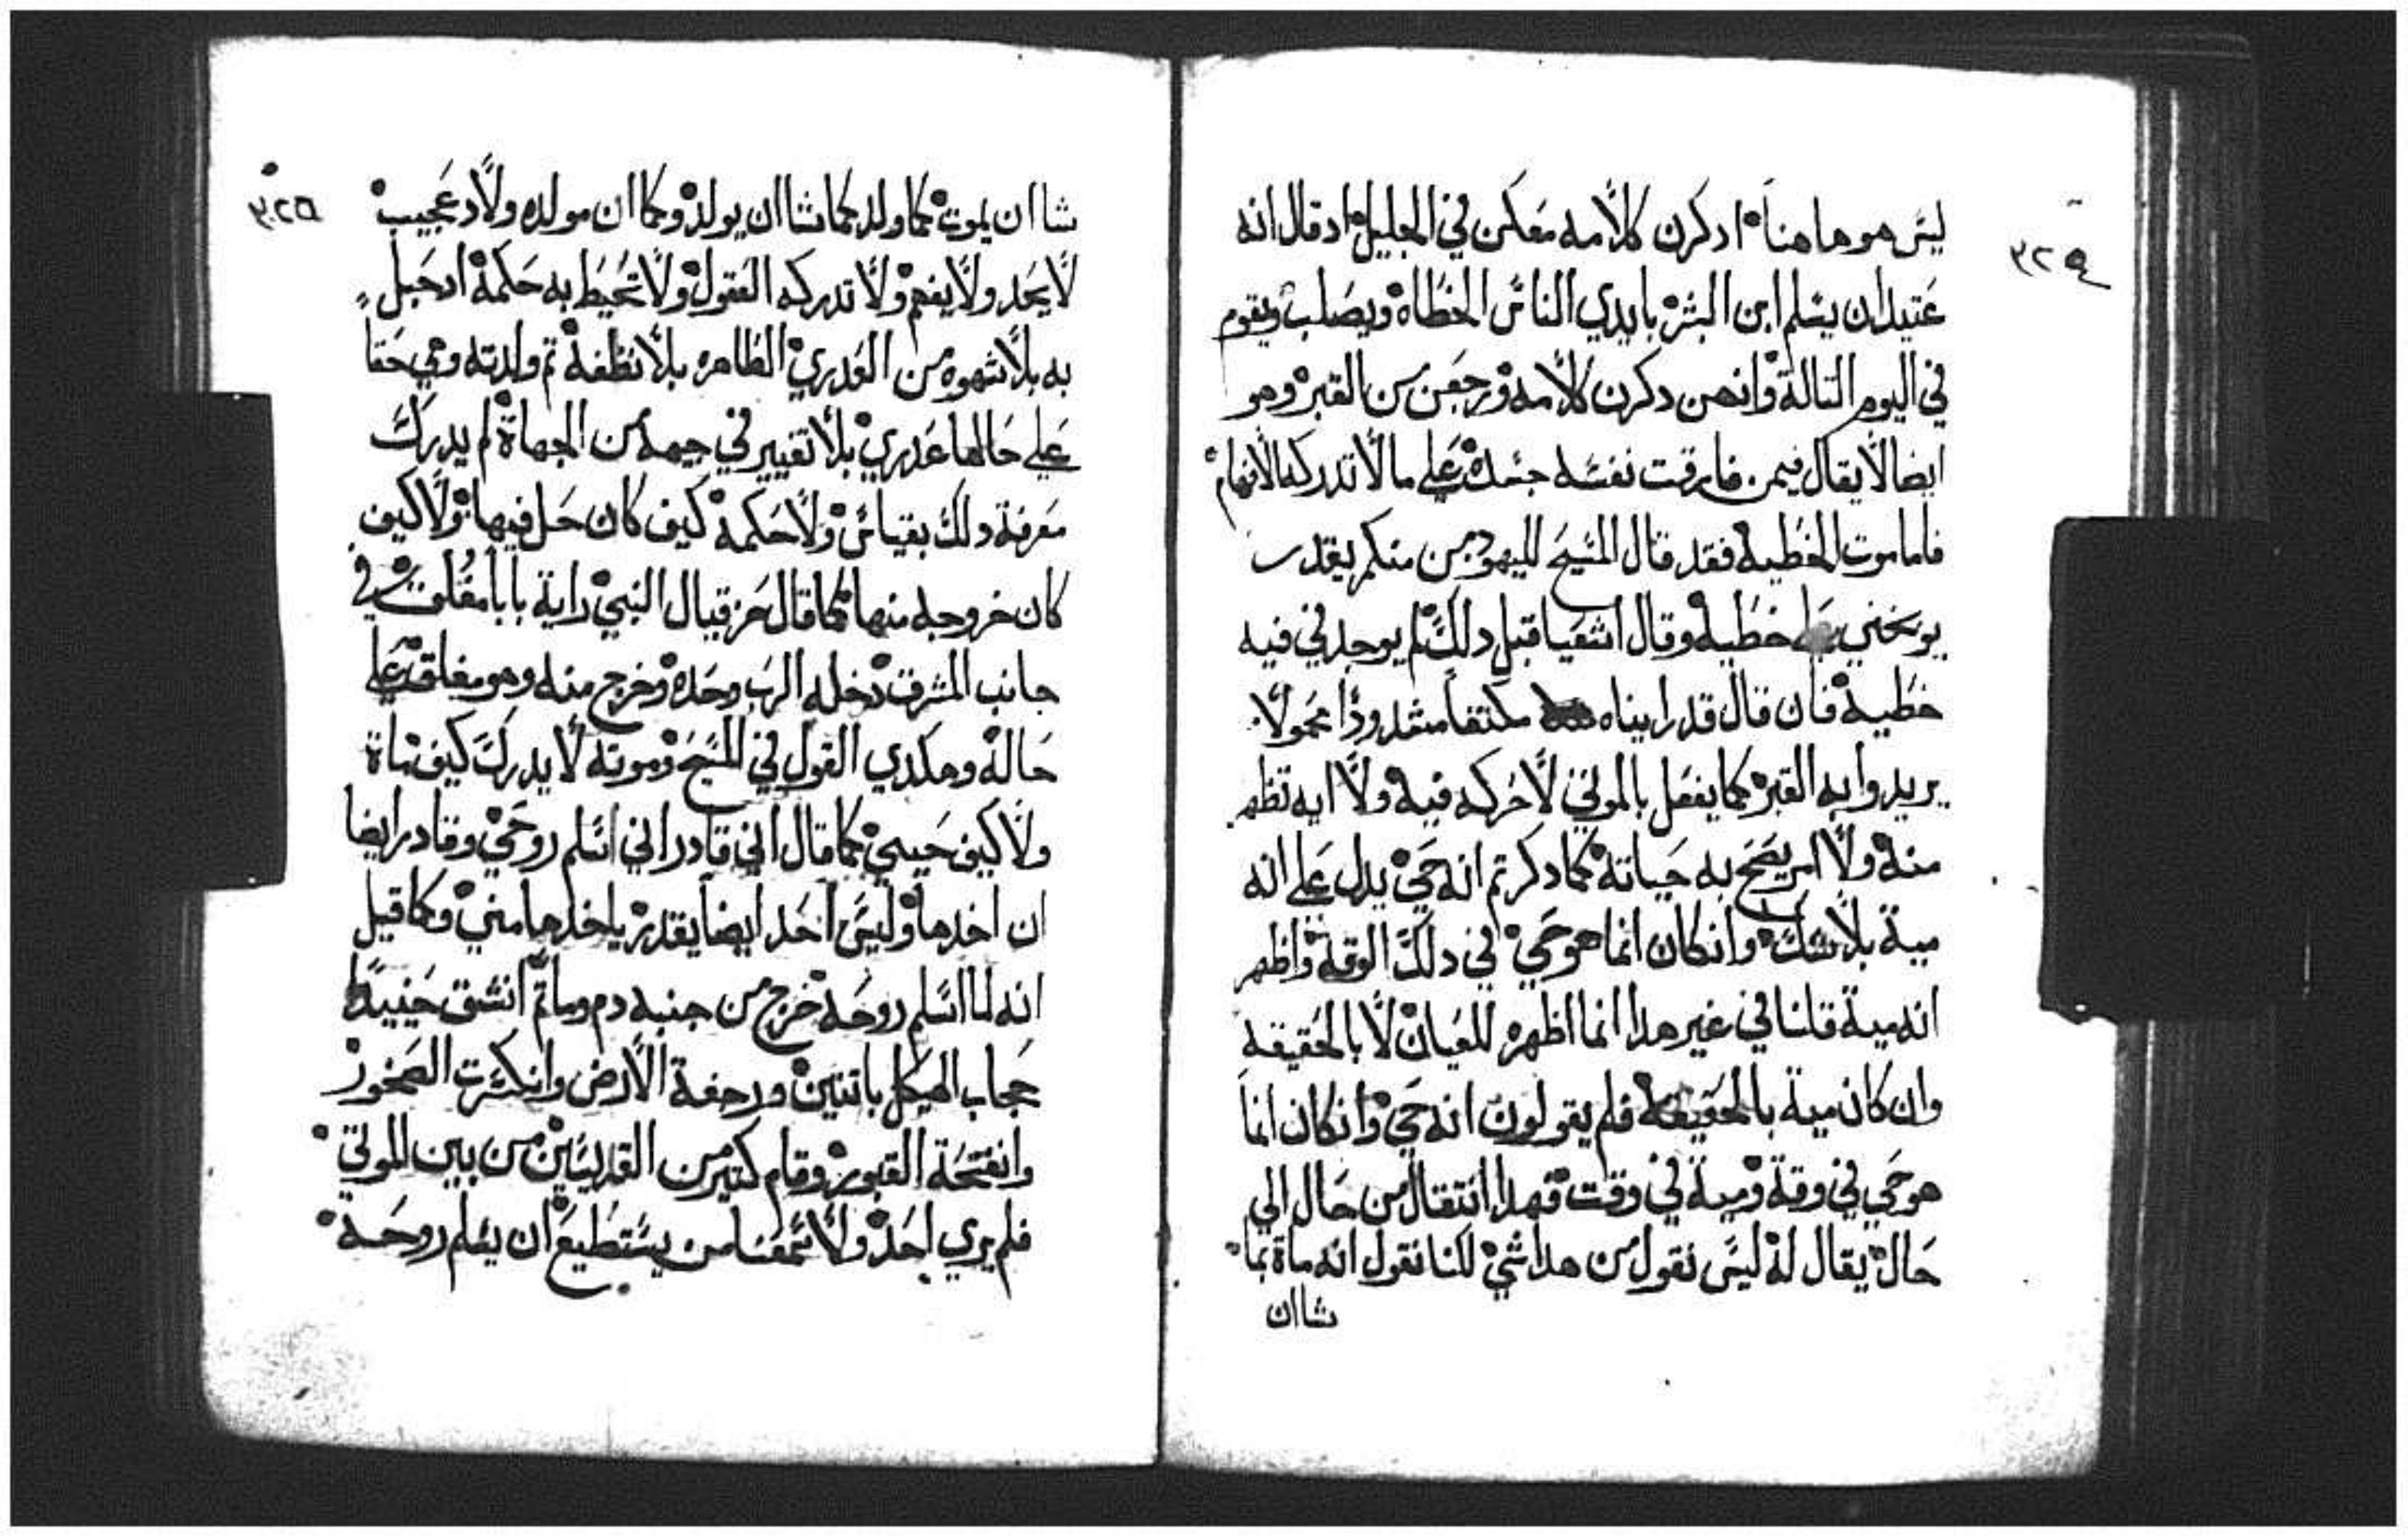 ٣٢٤
ليس هو هاهنا ادكرن كلامه معكن في الجليل اد قال انه
عتيد ان يسلم ابن البشر بايدي الناس الخطاه ويصلب ويقوم
في اليوم التالة وانهن دكرن كلامه ورجعن من القبر وهو
ايضا لا يقال فيمن فارقت نفسه جسده علي ما لا تدركه الافهام
فاما موت الخطيه فقد قال المسيح لليهود من منكم يقدر
يوبخني علي خطيه وقال اشعيا قبل دلك لم يوجد في فيه
خطيه فان قال قد رايناه مكتفا مشدودا محمولا
يريدوا به القبر كما يفعل بالموتي لا حركه فيه ولا ايه تظهر
منه ولا امر يصح به حياته كما دكرتم انه حي يدل علي انه
مية بلا شك وانكان انما هو حي في دلك الوقة واظهر
انه مية قلنا في غير هدا انما اظهر للعيان لا بالحقيقه
وان كان مية بالحقيقه فلم يقولون انه حي وانكان انما
هو حي في وقة ومية في وقت فهدا انتقال من حال الي
حال يقال له ليس نقول من هدا شي لكنا نقول انه ماة بما
شا ان
٣٢٥
شا ان يموت كما ولد كما شا ان يولد وكما ان مولده ولاد عجيب
لا يحد ولا يفهم ولا تدركه العقول ولا تحيط به حكمة اد حبل
به بلا شهوه من العدري الطاهره بلا نطفة تم ولدته وهي حقا
علي حالها عدري بلا تغيير في جهة من الجهاة لم يدرك
معرفة دلك بقياس ولا حكمة كيف كان حل فيها ولا كيف
كان خروجه منها كما قال حزقيال النبي راية بابا مغلوق في
جانب المشرق دخله الرب وحده وخرج منه وهو مغلق علي
حاله وهكدي القول في المسيح وموته لا يدرك كيف ماة
ولا كيف حيي كما قال اني قادر اني اسلم روحي وقادر ايضا
ان اخدها وليس احد ايضا يقدر ياخدها مني وكما قيل
انه لما اسلم روحه خرج من جنبه دم وما تم انشق حينيد
حجاب الهيكل باتنين ورجفة الارض وانكسرت الصخور
وانفتحة القبور وقام كتير من القديسين من بين الموتي
فلم يري احد ولا سمعنا من يستطيع ان يسلم روحه